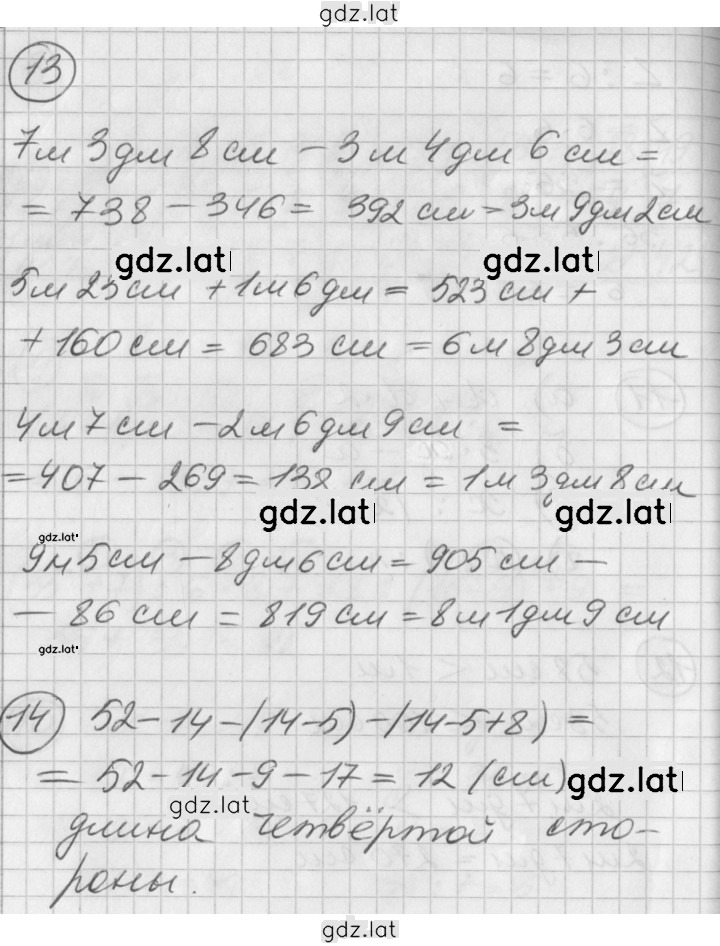 gdz.lat
13
7м 3дм 8 см – 3 м 4 дм 6 см =
= 738 – 346 = 392 см = 3м 9дм 2см
gdz.lat
5м 23 см + 1м 6 дм = 523 см +
+ 160 см = 683 см = 6 м 8 дм 3 см
4м 7 см – 2 м 6 дм 9 см =
= 407 – 269 = 138 см = 1м 3 дм 8 см
gdz.lat gdz.lat
gdz.lat
9м 5 см – 8 дм 6 см = 905 см –
– 86 см = 819 см = 8 м 1 дм 9 см
gdz.lat
14 52 – 14 – (14-5) – (14-5+8) =
= 52 – 14 – 9 – 17 = 12 (см) gdz.lat
gdz.lat
длина четвёртой сто-
роны.
gdz.lat